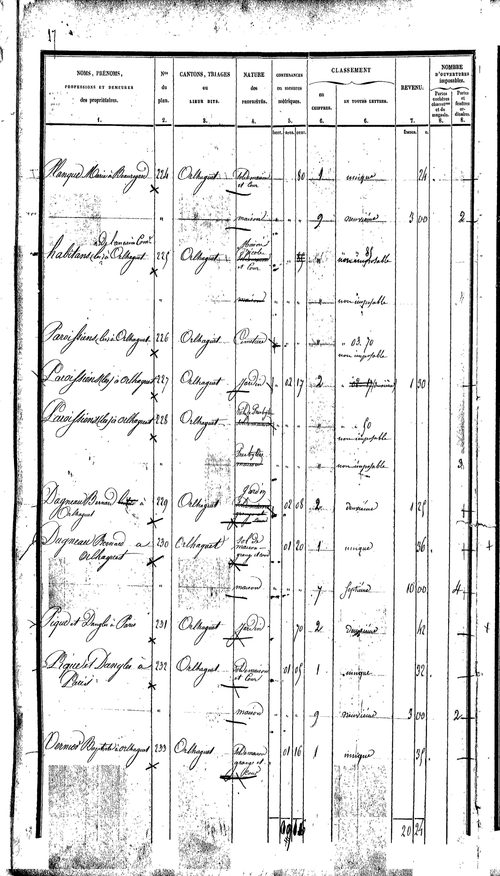 17
NOMS, PRÉNOMS, PROFESSIONS ET DEMEURE des propriétaires.
Nos du plan.
CANTONS, TRIAGES ou LIEUX DITS.
NATURE des PROPRIÉTÉS.
CONTENANCES en mesures métriques.
CLASSEMENT
en CHIFFRES.
EN TOUTES LETTRES.
REVENU.
NOMBRE D'OUVERTURES imposables.
Portes cochères charretières et de magasin.
Portes et fenêtres ordinaires.
1. 2. 3. 4. 5. 6. 6. 7. 8. 8.
hect. ares. cent. francs. c.
Planque Marie à Beauregard 224 Orlhaguet Sol de maison et Cour 80 1 unique 24
" maison 9 neuvième 3 00 2
habitans (les) à Orlhaguet 225 Orlhaguet Maison d'école et Cour non imposable
maison non imposable
Paroissiens (les) à Orlhaguet 226 Orlhaguet Cimetière " 03. 70
non imposable
Paroissiens (les) à Orlhaguet 227 Orlhaguet Jardin 02 17 2 1 30
Paroissiens (les) à Orlhaguet 228 Orlhaguet " " 50
non imposable
Presbytère non imposable 3
Dagneau Bernard à Orlhaguet 229 Orlhaguet Jardin 02 08 2 deuxième 1 25
Dagneau Bernard à Orlhaguet 230 Orlhaguet Sol de maison grange et cour 01 20 1 unique 36
" maison 7 septième 10 00 4
Pique et Dangles à Paris 231 Orlhaguet Jardin 70 2 deuxième 42
Pique et Dangles à Paris 232 Orlhaguet Sol de maison et Cour 01 05 1 unique 32
" maison 9 neuvième 3 00 2
Vernier Baptiste à Orlhaguet 233 Orlhaguet Sol de maison grange et Cour 01 16 1 unique 35
20 24